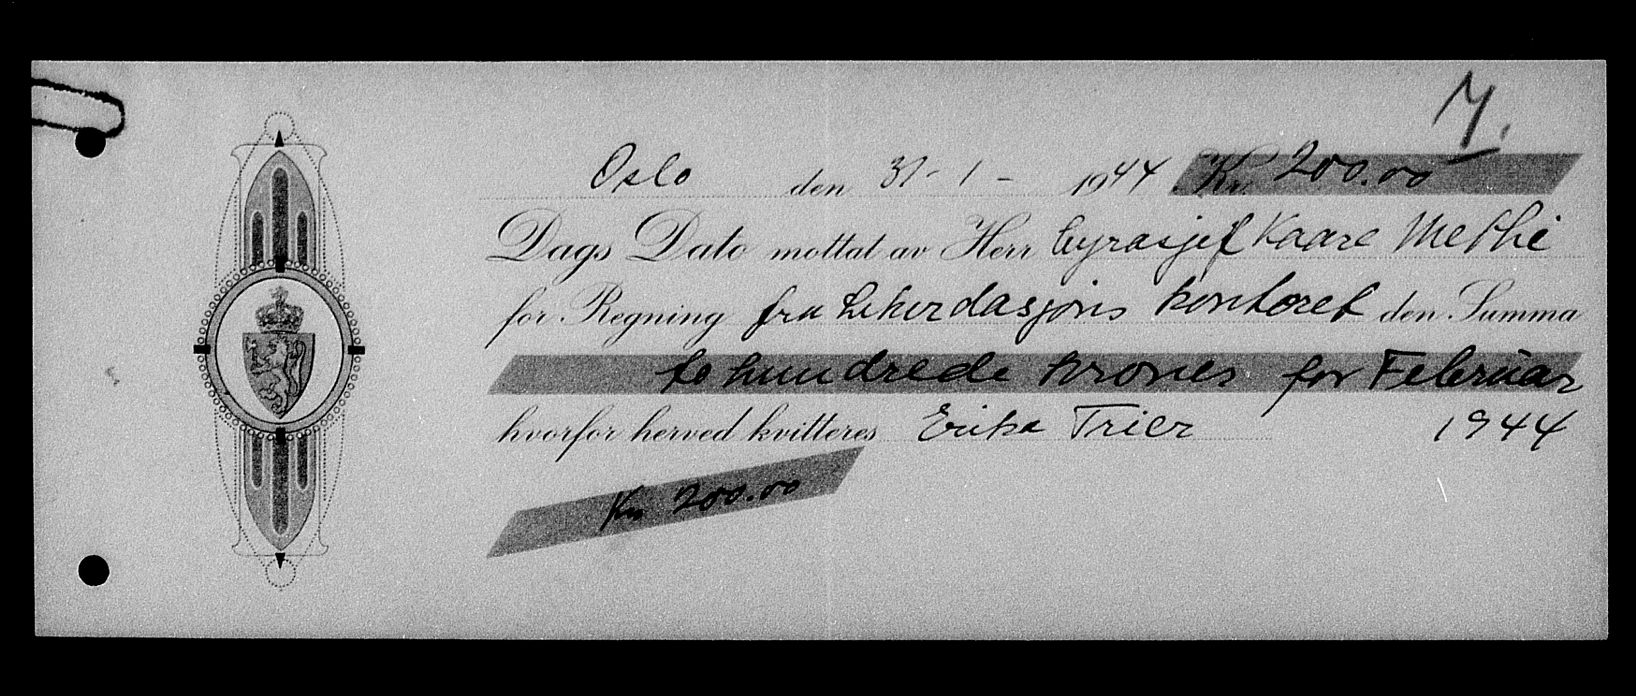 7.
Oslo den 31-1- 1944 Kr. 200.00
Dags Dato mottat av Herr byrasjef Kaare Methi
for Regning fra Likvidasjons kontoret den Summa
to hundrede kroner for Februar
hvorfor herved kvitteres Erika Trier 1944
Kr. 200.00